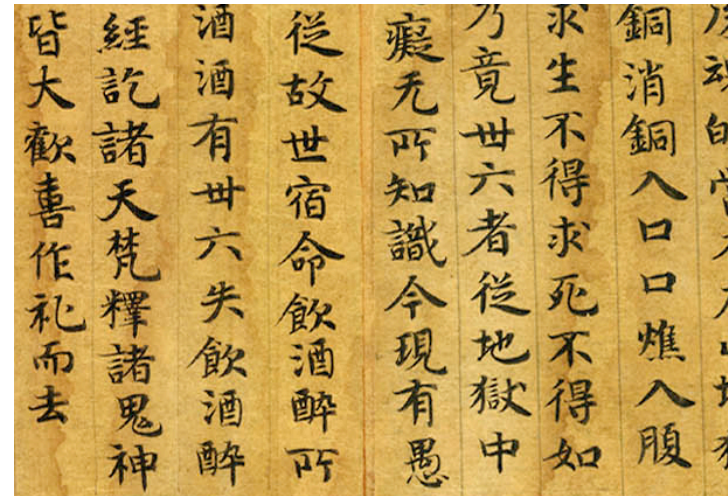 銅消銅入口口燋入腹
求生不得求死不得如
乃竟丗六者從地獄中
癡无所知識今現有愚
從故世宿命飲酒醉所
酒酒有丗六失飲酒醉
經訖諸天梵釋諸鬼神
皆大歡喜作礼而去